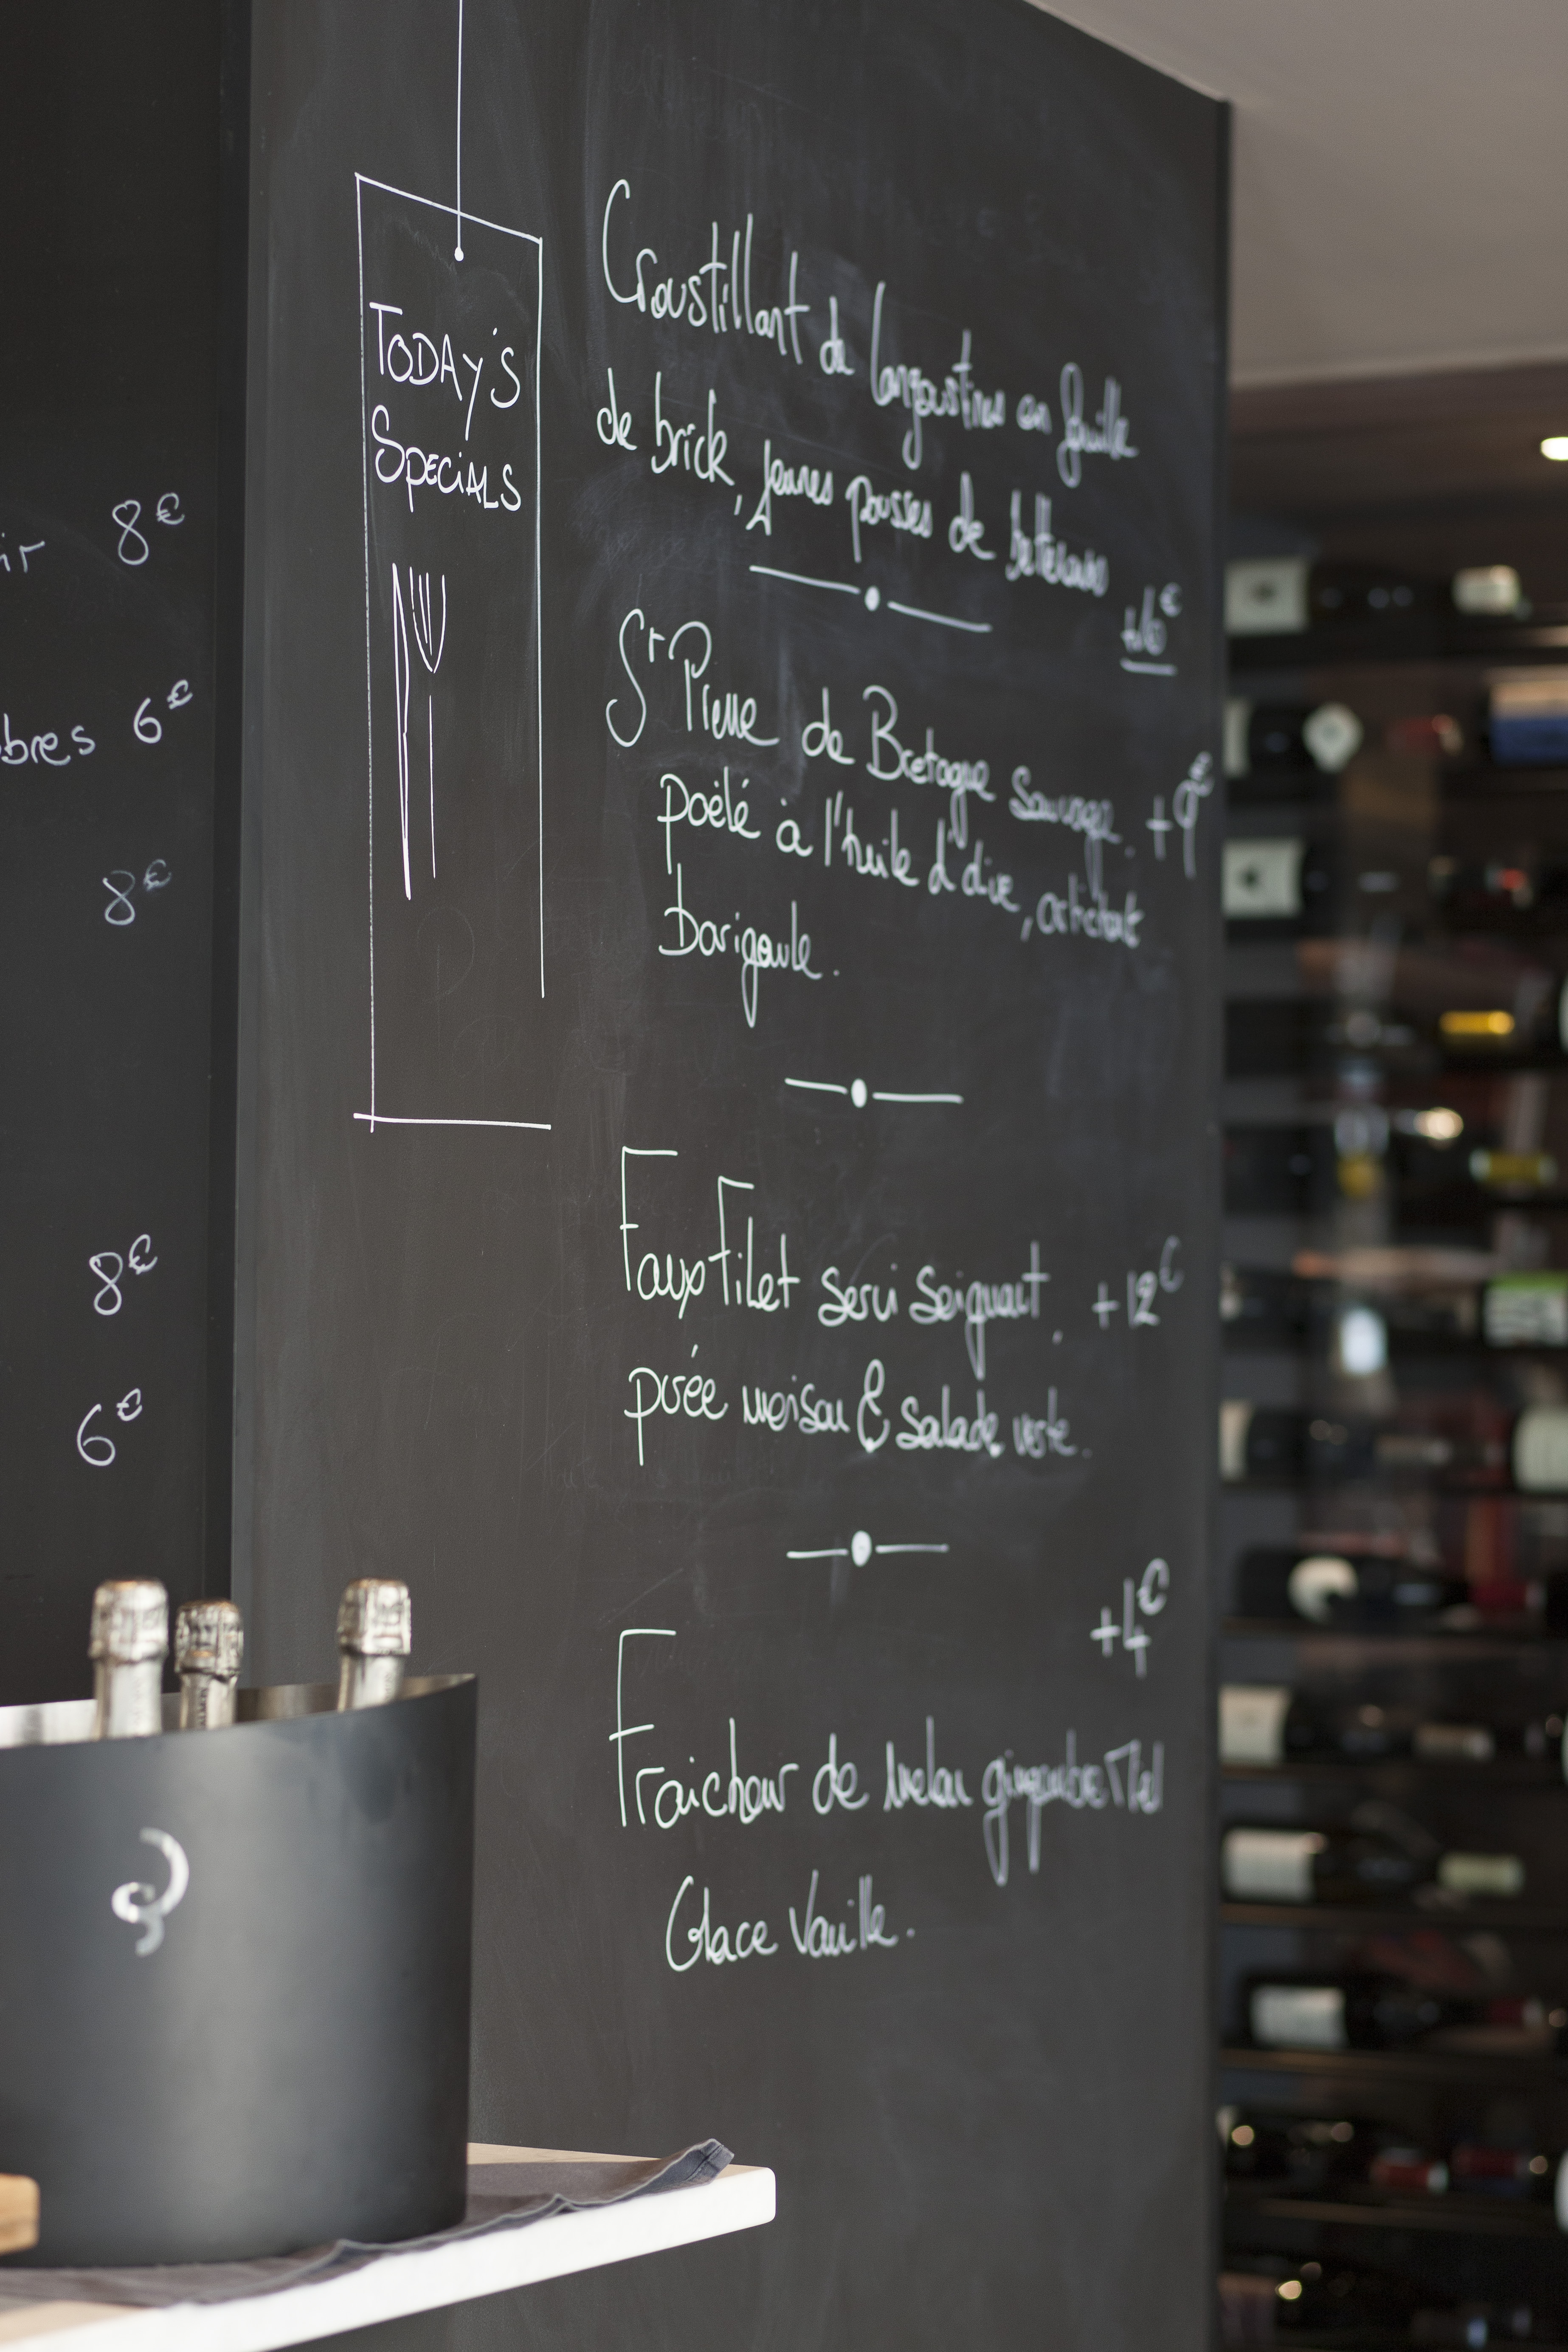 ir 8€
bres 6€
8€
8€
6€
TODAY'S
SPECIALS
Croustillant de langoustines en feuille
de brick, jeunes pousses de betteraves
+6€
St Pierre de Bretagne Sauvage. +9€
poëlé à l'huile d'olive, artichaut
barigoule.
Faux Filet servi Seignant, +12€
purée maison & salade verte.
+4€
Fraicheur de Melon gingembre Miel
Glace Vanille.